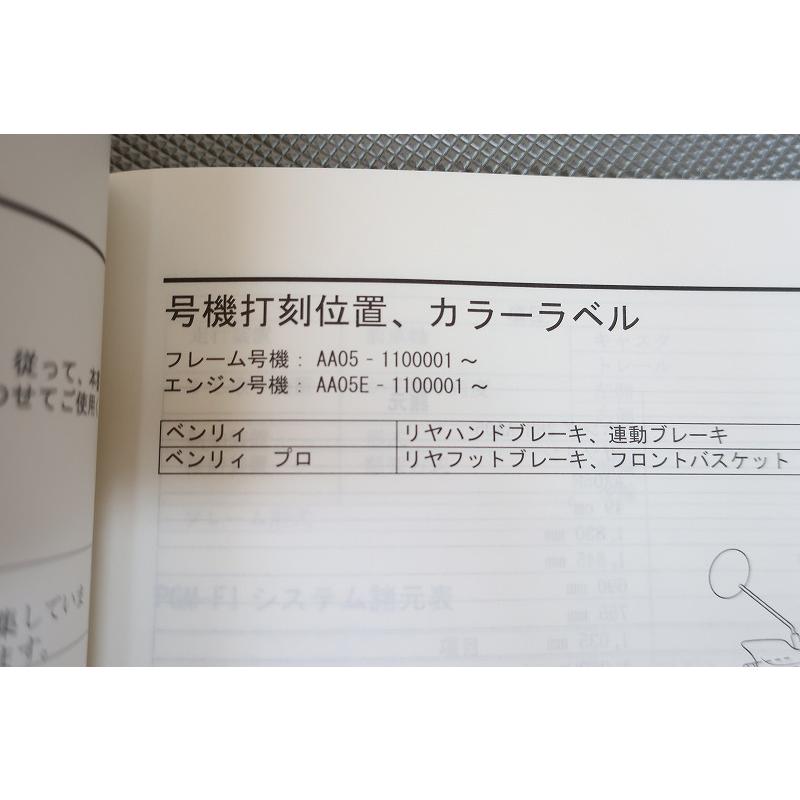 号機打刻位置、カラーラベル
フレーム号機： AA05 - 1100001 ～
エンジン号機： AA05E - 1100001 ～
ベンリィ リヤハンドブレーキ、連動ブレーキ
ベンリィ プロ リヤフットブレーキ、フロントバスケット
従って、本
わせてご使用
集していま
ます。